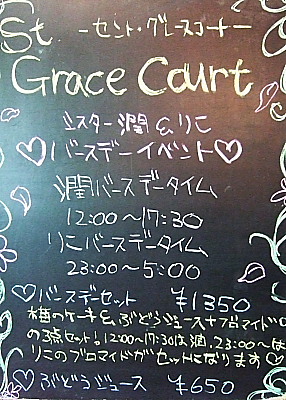 St
-セント・グレースコート-
Grace Court
ミスター潤&りこ
♡バースデーイベント♡
潤バースデータイム
12:00~17:30
りこバースデータイム
23:00~5:00
♡バースデーセット ¥1350
梅のケーキ&ぶどうジュース+ブロマイド
の3点セット!12:00~17:30は潤、23:00~は
りこのブロマイドがセットになります♡
♡ぶどうジュース ¥650